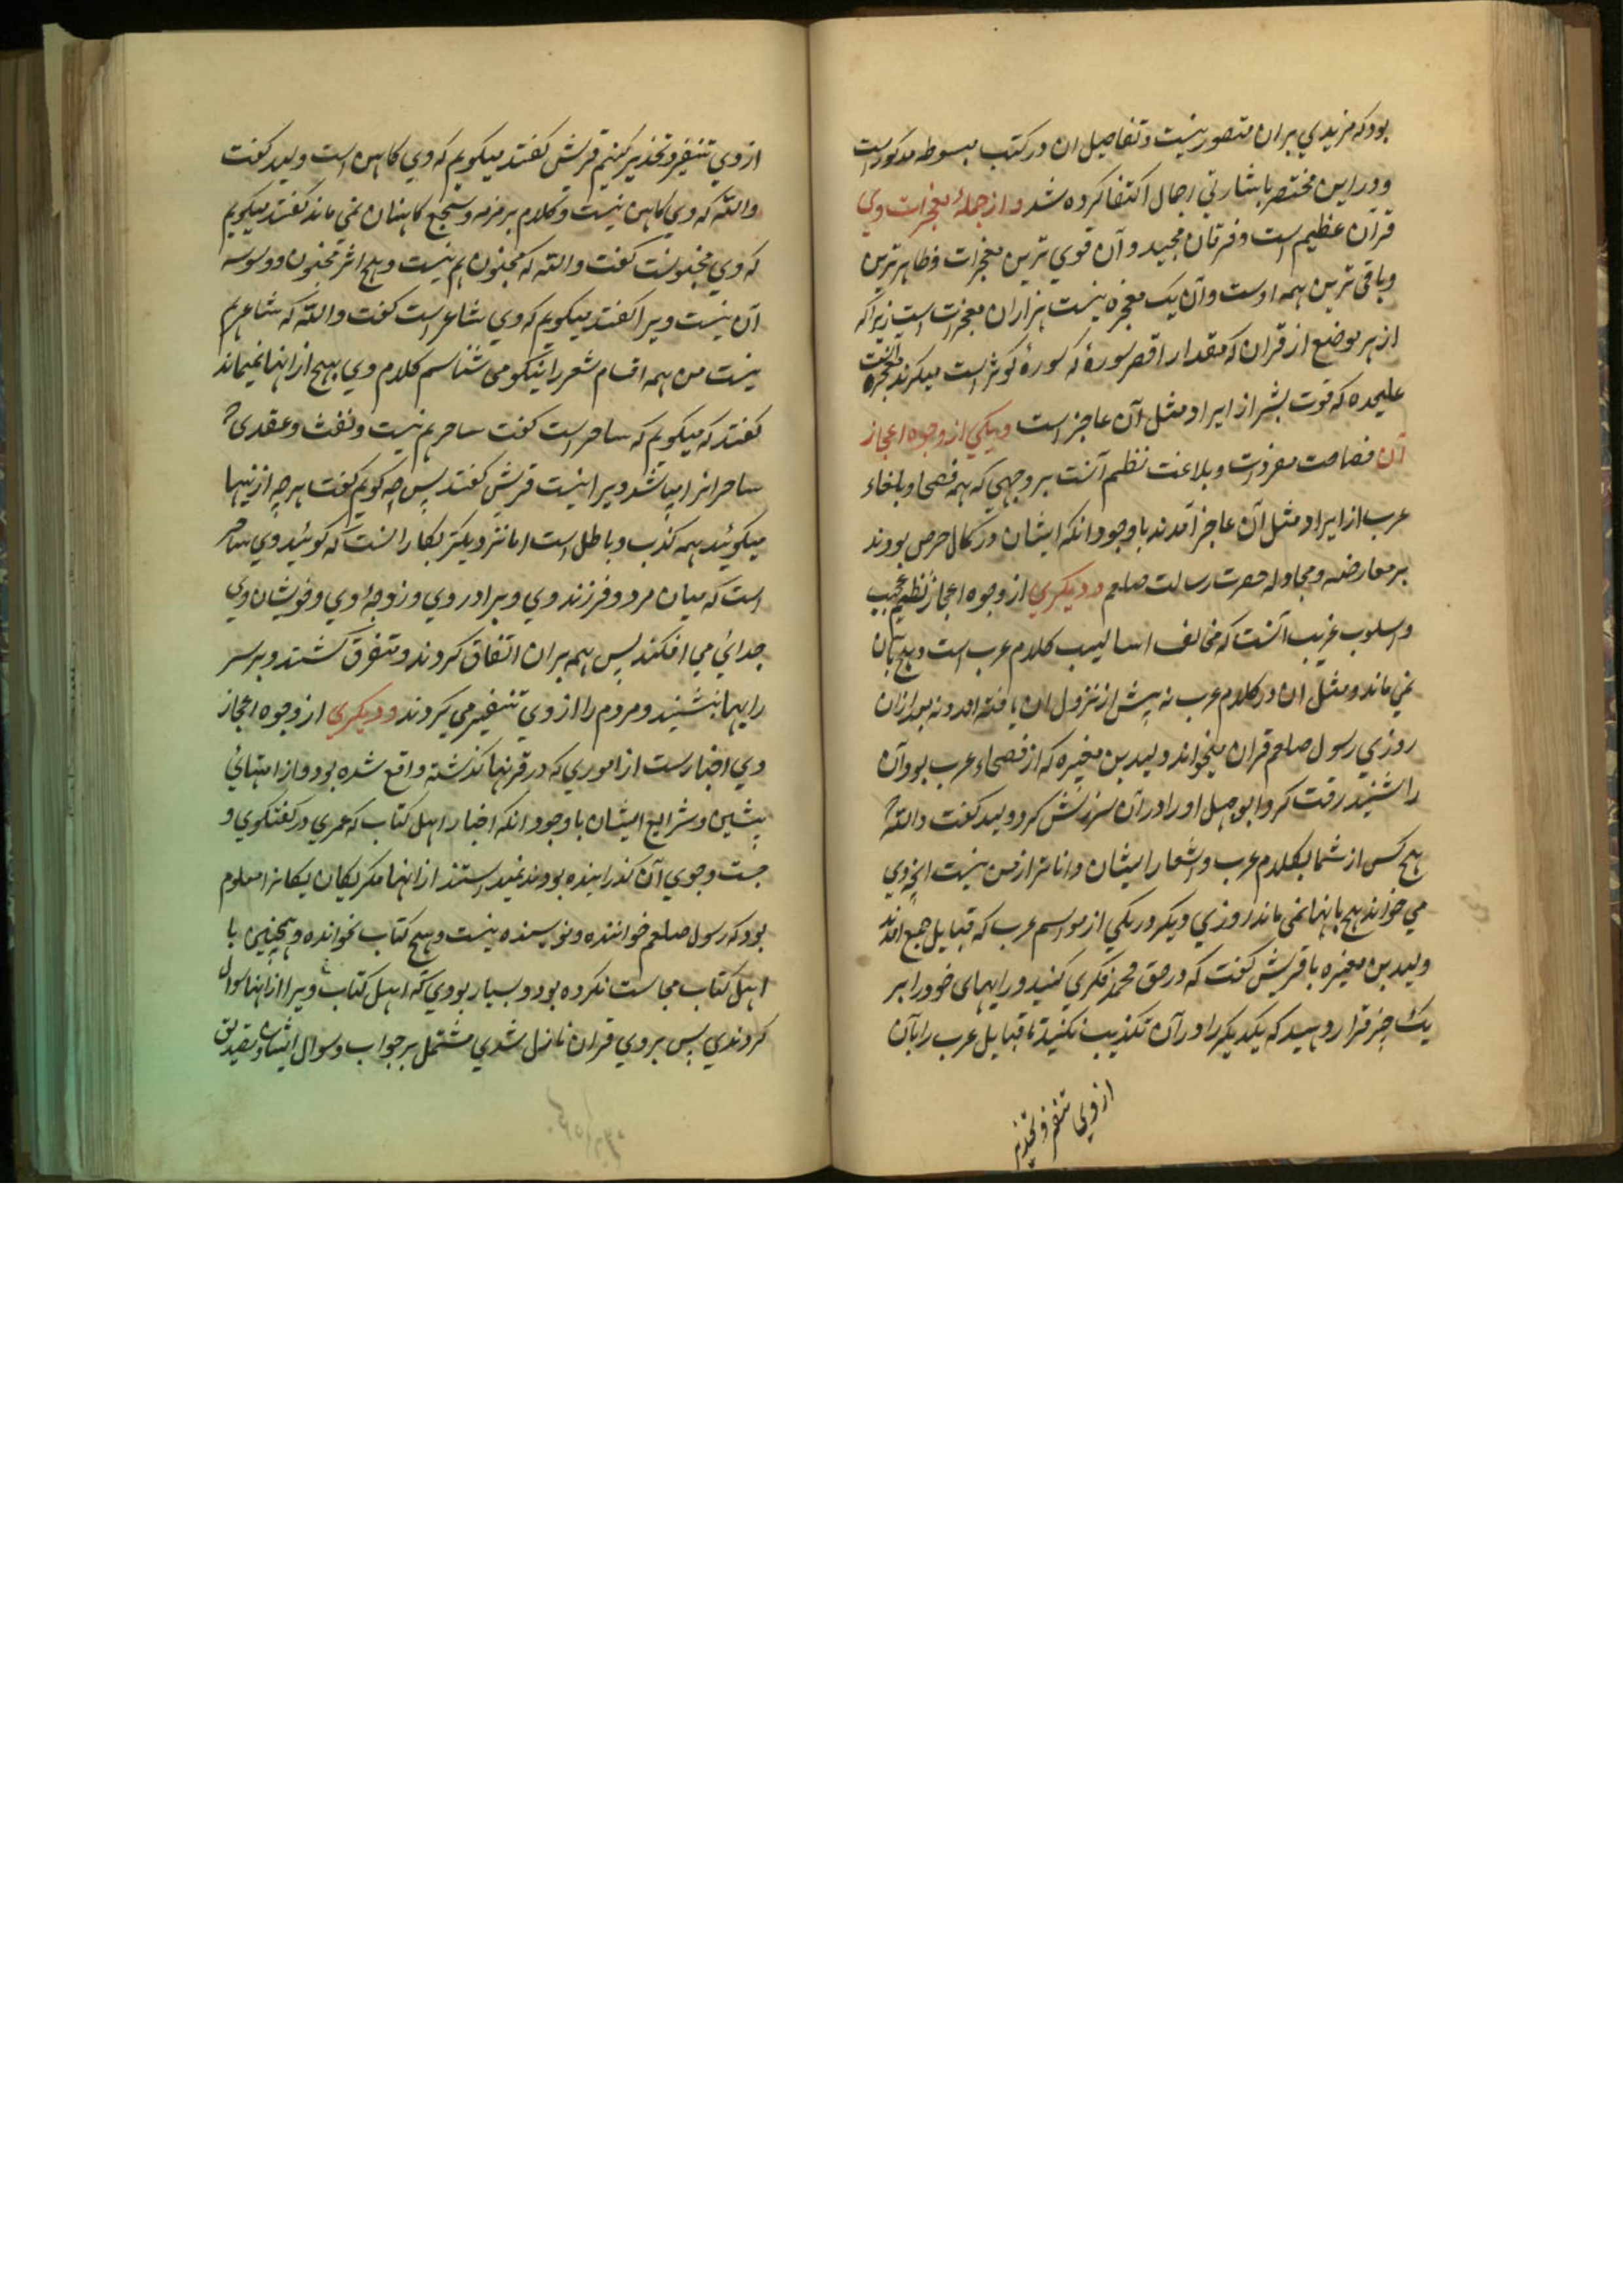 بود که مزیدی بران متصور نیست و تفاصیل ان در کتب مبسوطه مذکور است
و در این مختصر باشارتی اجمال اکتفا کرده شد و از جملهٔ معجزات وی
قرآن عظیم است و فرقان مجید و آن قوی ترین معجزات و ظاهر ترین
و باقی ترین همه اوست و آن یک معجزه نیست هزاران معجزات است زیرا که
از هر موضع از قران که مقدار اقصر سورهٔ که سورهٔ کوثر است میگیرند معجزه ایست
علیحده که قوت بشر از ایراد مثل آن عاجز است و یکی از وجوه اعجاز
آن فصاحت مفردات و بلاغت نظم آنست بر وجهی که همه فصحا و بلغاء
عرب از ایراد مثل آن عاجز آمدند با وجود انکه ایشان در کمال حرص بودند
بر معارضه و مجادله حضرت رسالت صلعم و دیگری از وجوه اعجاز نظم عجیب
و اسلوب غریب آنست که مخالف اسالیب کلام عرب است و هیچ بآن
نمی ماند و مثل ان در کلام عرب نه پیش از نزول ان یافته اند و نه بعد ازان
روزی رسول صلعم قران میخواند ولید بن مغیره که از فصحاء عرب بود آن
را شنید رقت کرد ابو جهل او را در آن سرزنش کرد ولید گفت والله که
هیچ کس از شما بکلام عرب و اشعار ایشان داناتر از من نیست انچه وی
می خواند هیچ بانها نمی ماند روزی دیگر در یکی از مواسم عرب که قبایل جمع امدند
ولید بن مغیره با قریش گفت که در حق محمد فکری کنید و رایهای خود را بر
یک چیز قرار دهید که یکدیگر را در آن تکذیب نکنید تا قبایل عرب را بآن
از وی تنفیر و تحذیر
از وی تنفیر و تحذیر کنیم قریش گفتند میگویم که وی کاهن است ولید گفت
والله که وی کاهن نیست و کلام بر مزمه و سجع کاهنان نمی ماند گفتند میگویم
که وی مجنونست گفت والله که مجنون هم نیست و هیچ اثر مجنون و وسوسه
آن نیست ویرا گفتند میگویم که وی شاعر است گفت والله که شاعر هم
نیست من همه اقسام شعر را نیکو می شناسم کلام وی بهیچ از انها نمیماند
گفتند که میگویم که ساحر است گفت ساحر هم نیست و نفث و عقدی که
ساحرانرا باشد ویرا نیست قریش گفتند پس چه گویم گفت هر چه از ینها
میگوئید همه کذب و باطل است اما نزدیکتر بکار انست که گوئید وی ساحر
است که میان مرد و فرزند وی و برادر وی و زوجهٔ وی و خویشان وی
جدائی می افکند پس همه بران اتفاق کردند و متفرق گشتند و بر سر
رایها بنشینند و مردم را از وی تنفیر می کردند و دیگری از وجوه اعجاز
وی اخبارست از اموری که در قرنها گذشته واقع شده بود و از انبیای
پیشین و شرایع ایشان با وجود انکه اخبار اهل کتاب که عمری در گفتگوی و
جست و جوی آن گذرانیده بودند نمیدانستند از انها مگر یکان یکانرا معلوم
بود که رسول صلعم خواننده و نویسنده نیست و هیچ کتاب نخوانده و همچنین با
اهل کتاب مجالست نکرده بود و بسیار بودی که اهل کتاب ویرا از انها سوال
کردندی پس بر وی قران نازل شدی مشتمل بر جواب و سوال ایشان و تصدیق